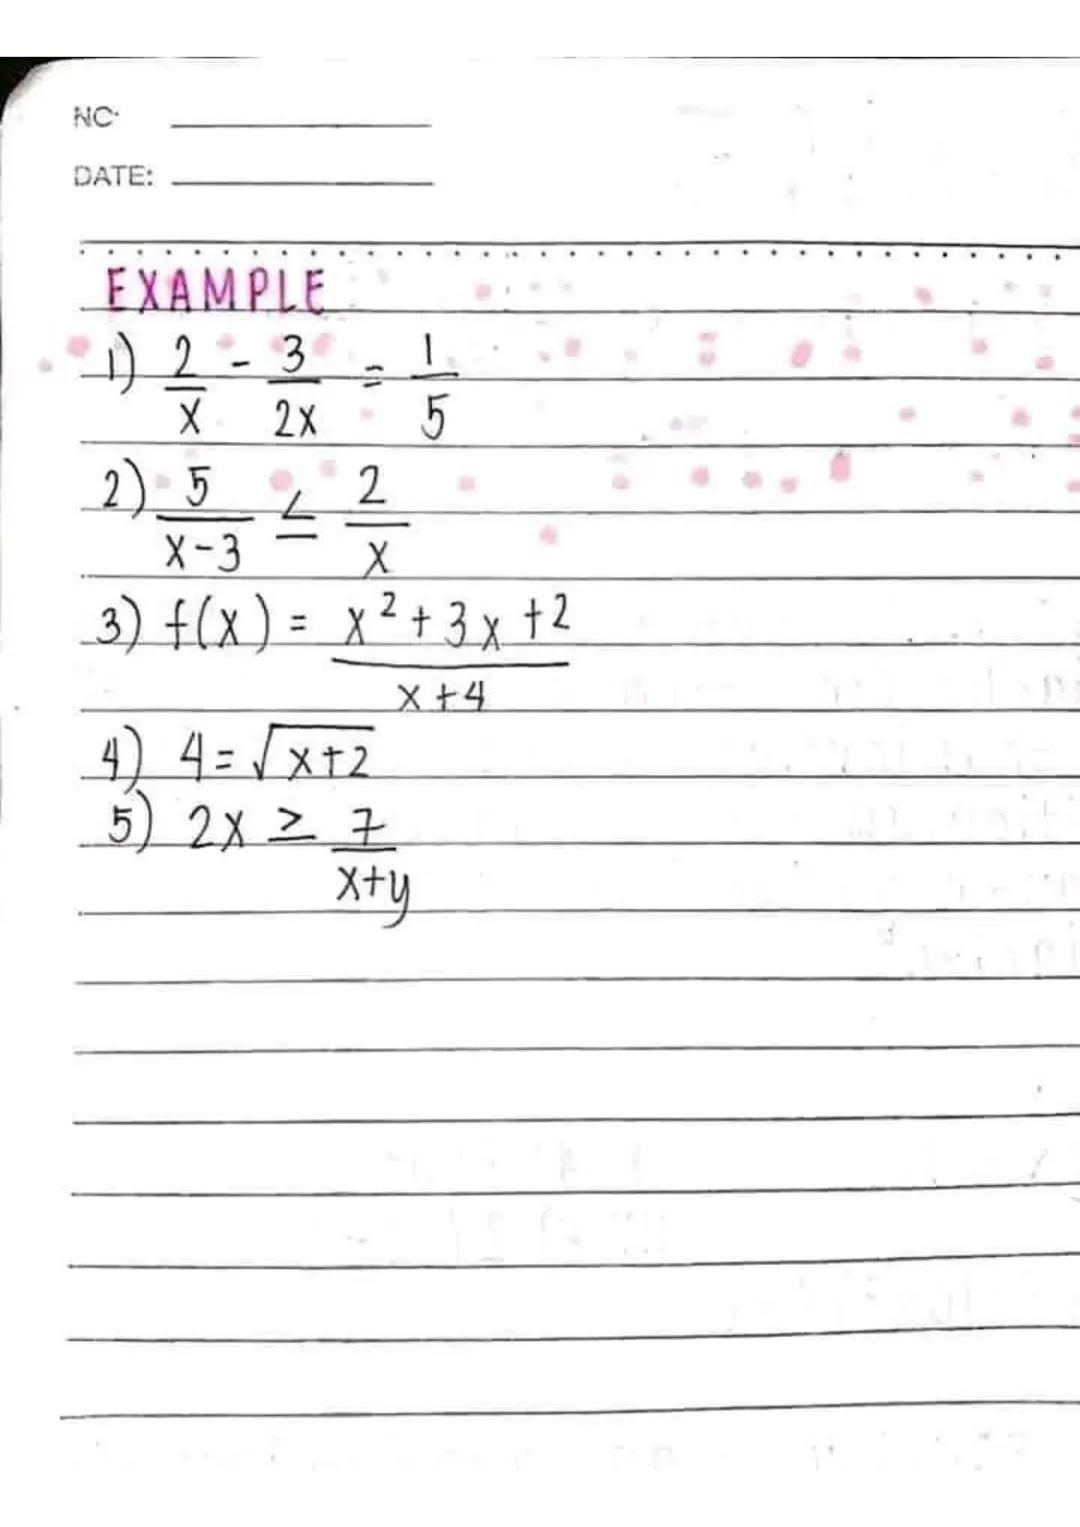 NO.
DATE:
EXAMPLE
1) 2/x - 3/2x = 1/5
2) 5/x-3 ≤ 2/x
3) f(x) = x²+3x+2/x+4
4) 4=√x+2
5) 2x ≥ 7/x+y